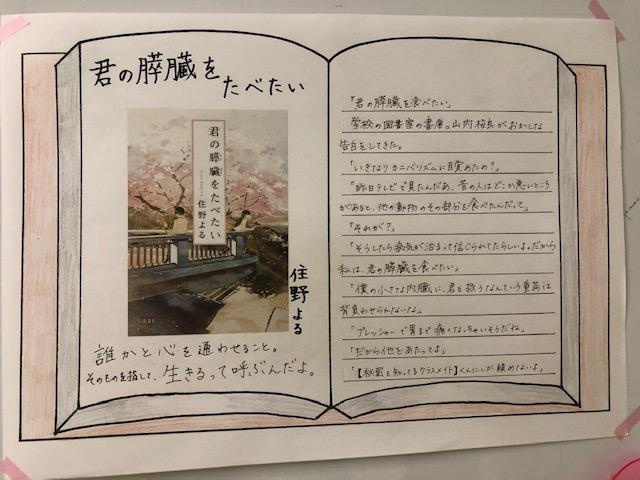 君の膵臓を
たべたい
君の膵臓をたべたい
住野よる
住野よる
誰かと心を通わせること。
そのものを指して、生きるって呼ぶんだよ。
「君の膵臓を食べたい」
学校の図書室の書庫。山内桜良がおかしな
告白をしてきた。
「いきなりカニバリズムに目覚めたの？」
「昨日テレビで見たんだあ、昔の人はどこか悪いところ
があると、他の動物のその部分を食べたんだって」
「それが？」
「そうしたら病気が治るって信じられてたらしいよ。だから
私は、君の膵臓を食べたい」
「僕の小さな内臓に、君を救うなんていう重荷は
背負わせられないな。」
「プレッシャーで胃まで痛くなっちゃいそうだね」
「だから他をあたってよ」
「【秘密を知ってるクラスメイト】くんにしか頼めないよ」